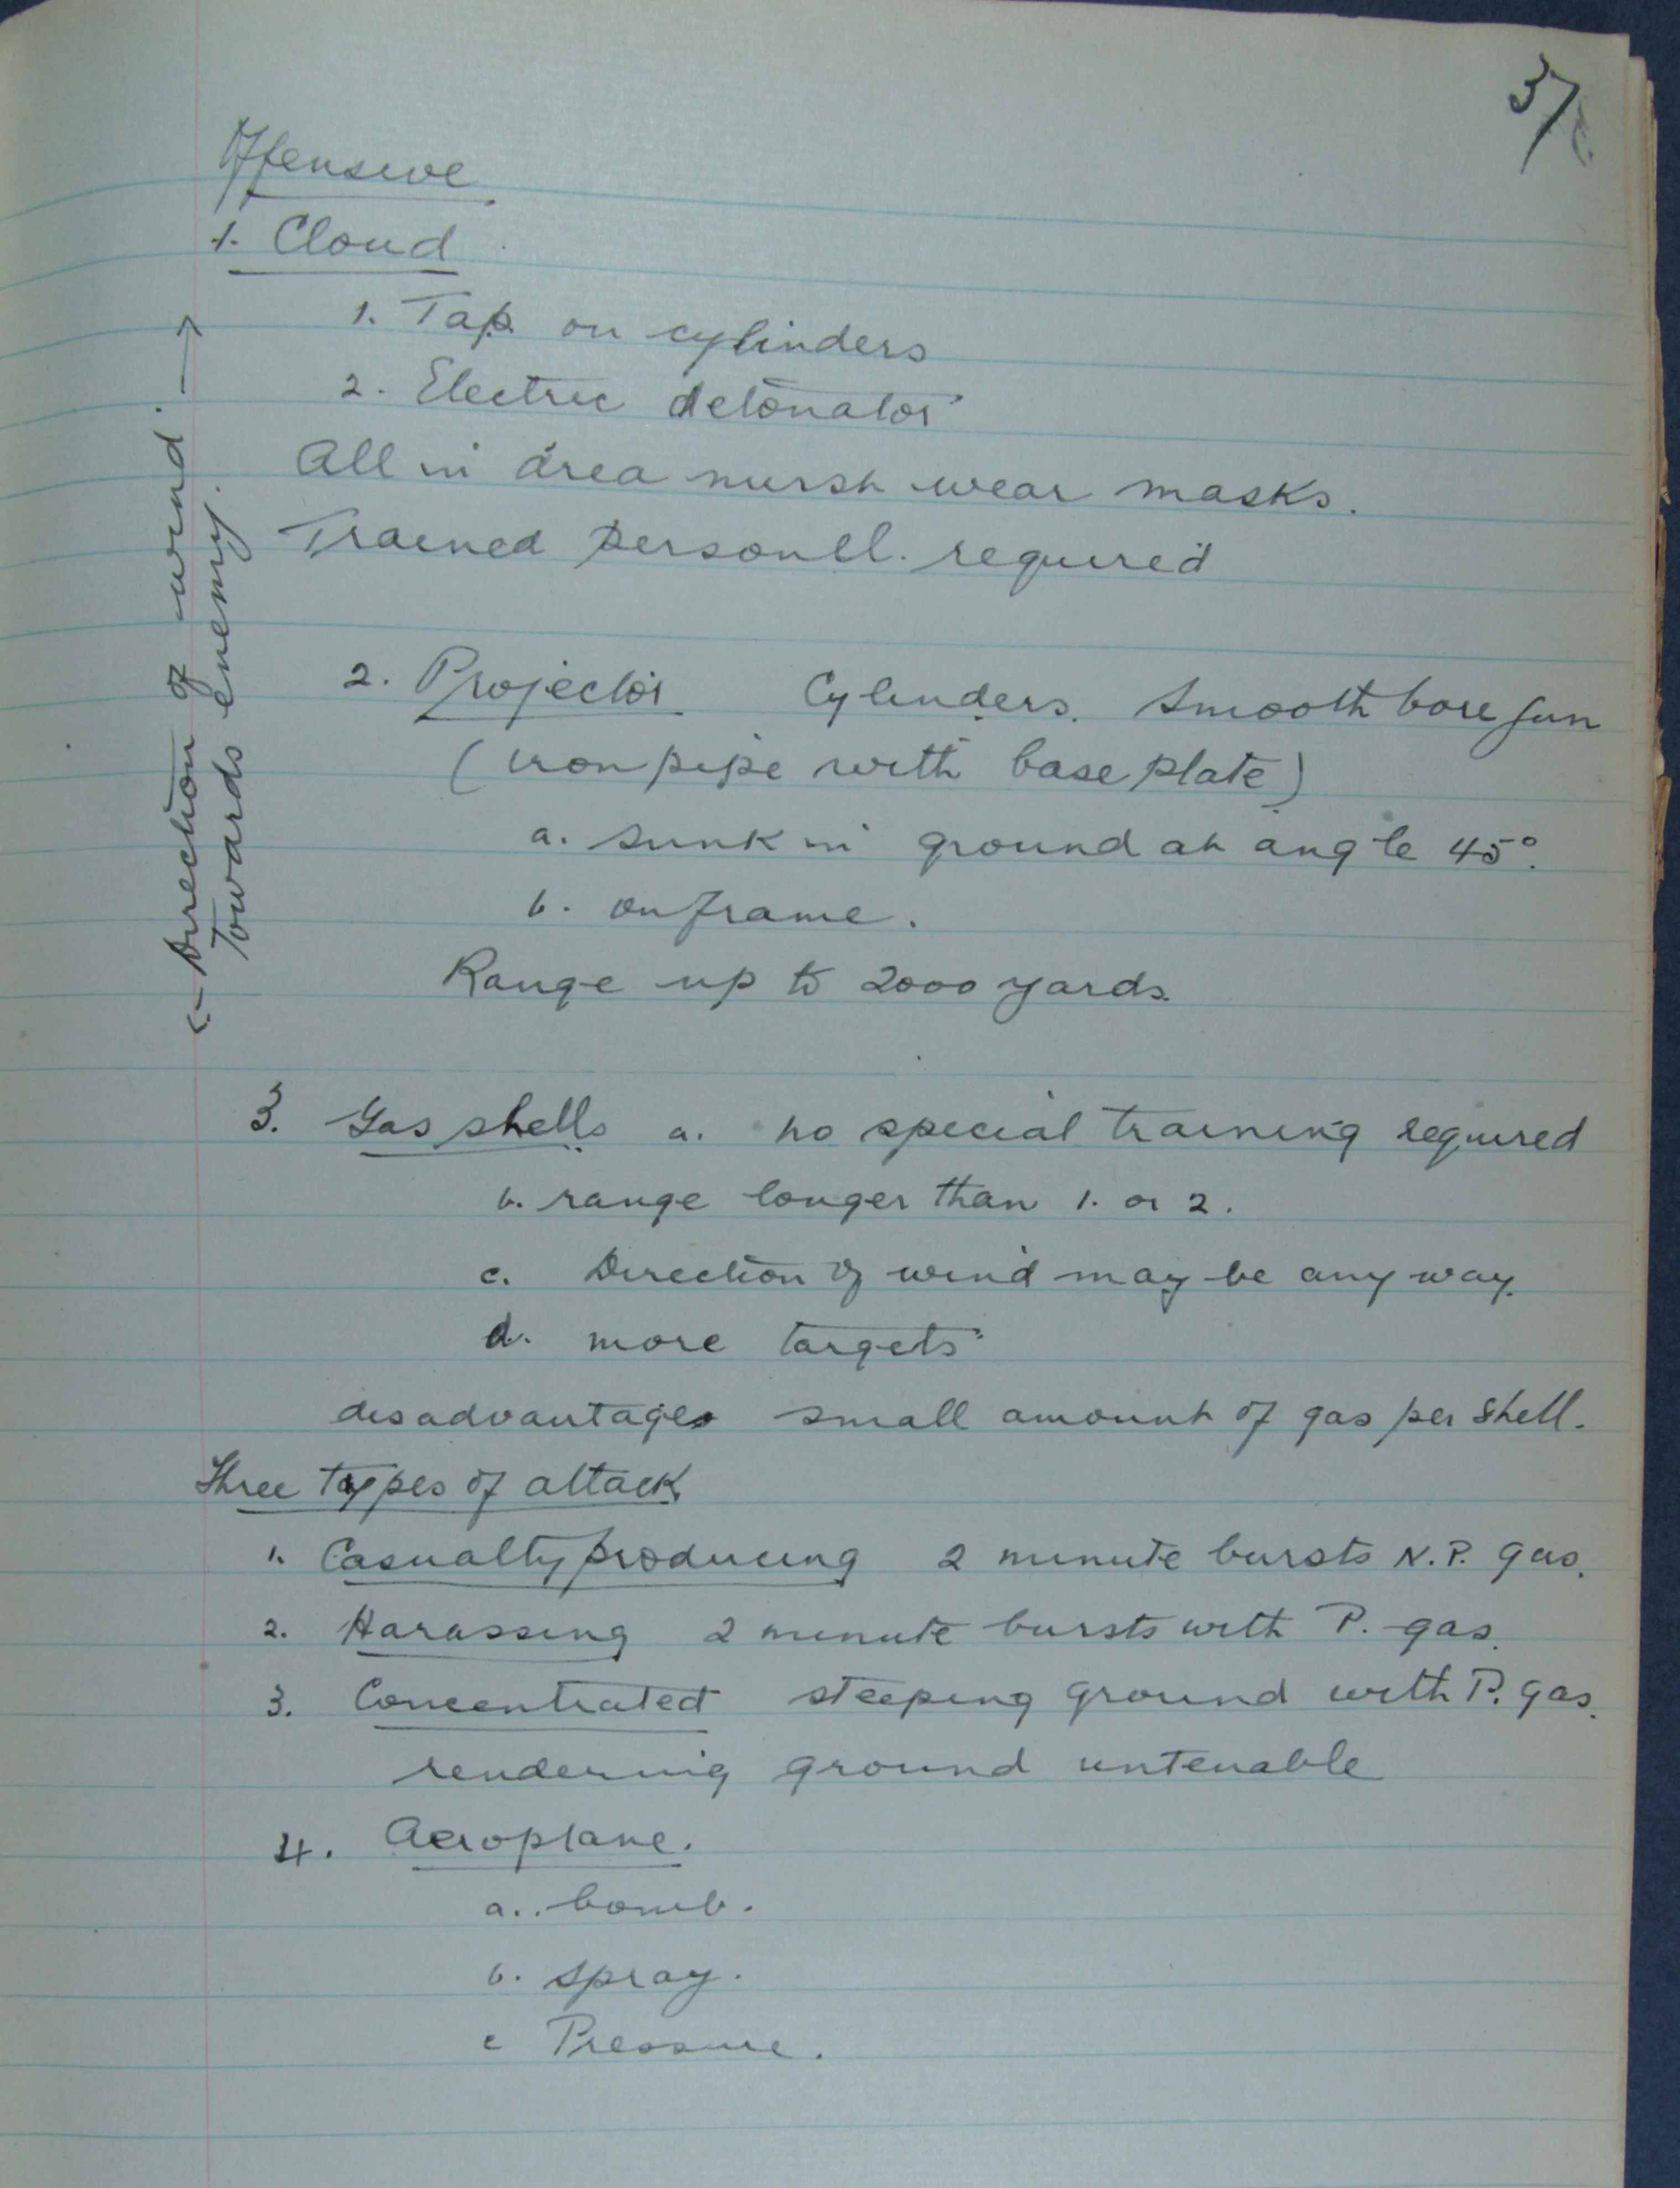 37
Offensive
1. Cloud
1. Tap on cylinders
2. Electric detonator
All in area mush wear masks.
Trained personll. required
← Direction of wind. →
Towards enemy.
2. Projector Cylinders. Smooth bore gun
(iron pipe with base plate)
a. sunk in ground at angle 45°.
b. on frame.
Range up to 2000 yards.
3. Gas shells a. no special training required
b. range longer than 1. or 2.
c. Direction of wind may be any way.
d. more targets
disadvantages small amount of gas per shell.
Three types of attack
1. Casualty producing 2 minute bursts N.P. gas.
2. Harassing 2 minute bursts with P. gas.
3. Concentrated steeping ground with P. gas.
rendering ground untenable
4. Aeroplane.
a.. bomb.
b. spray.
c Pressure.